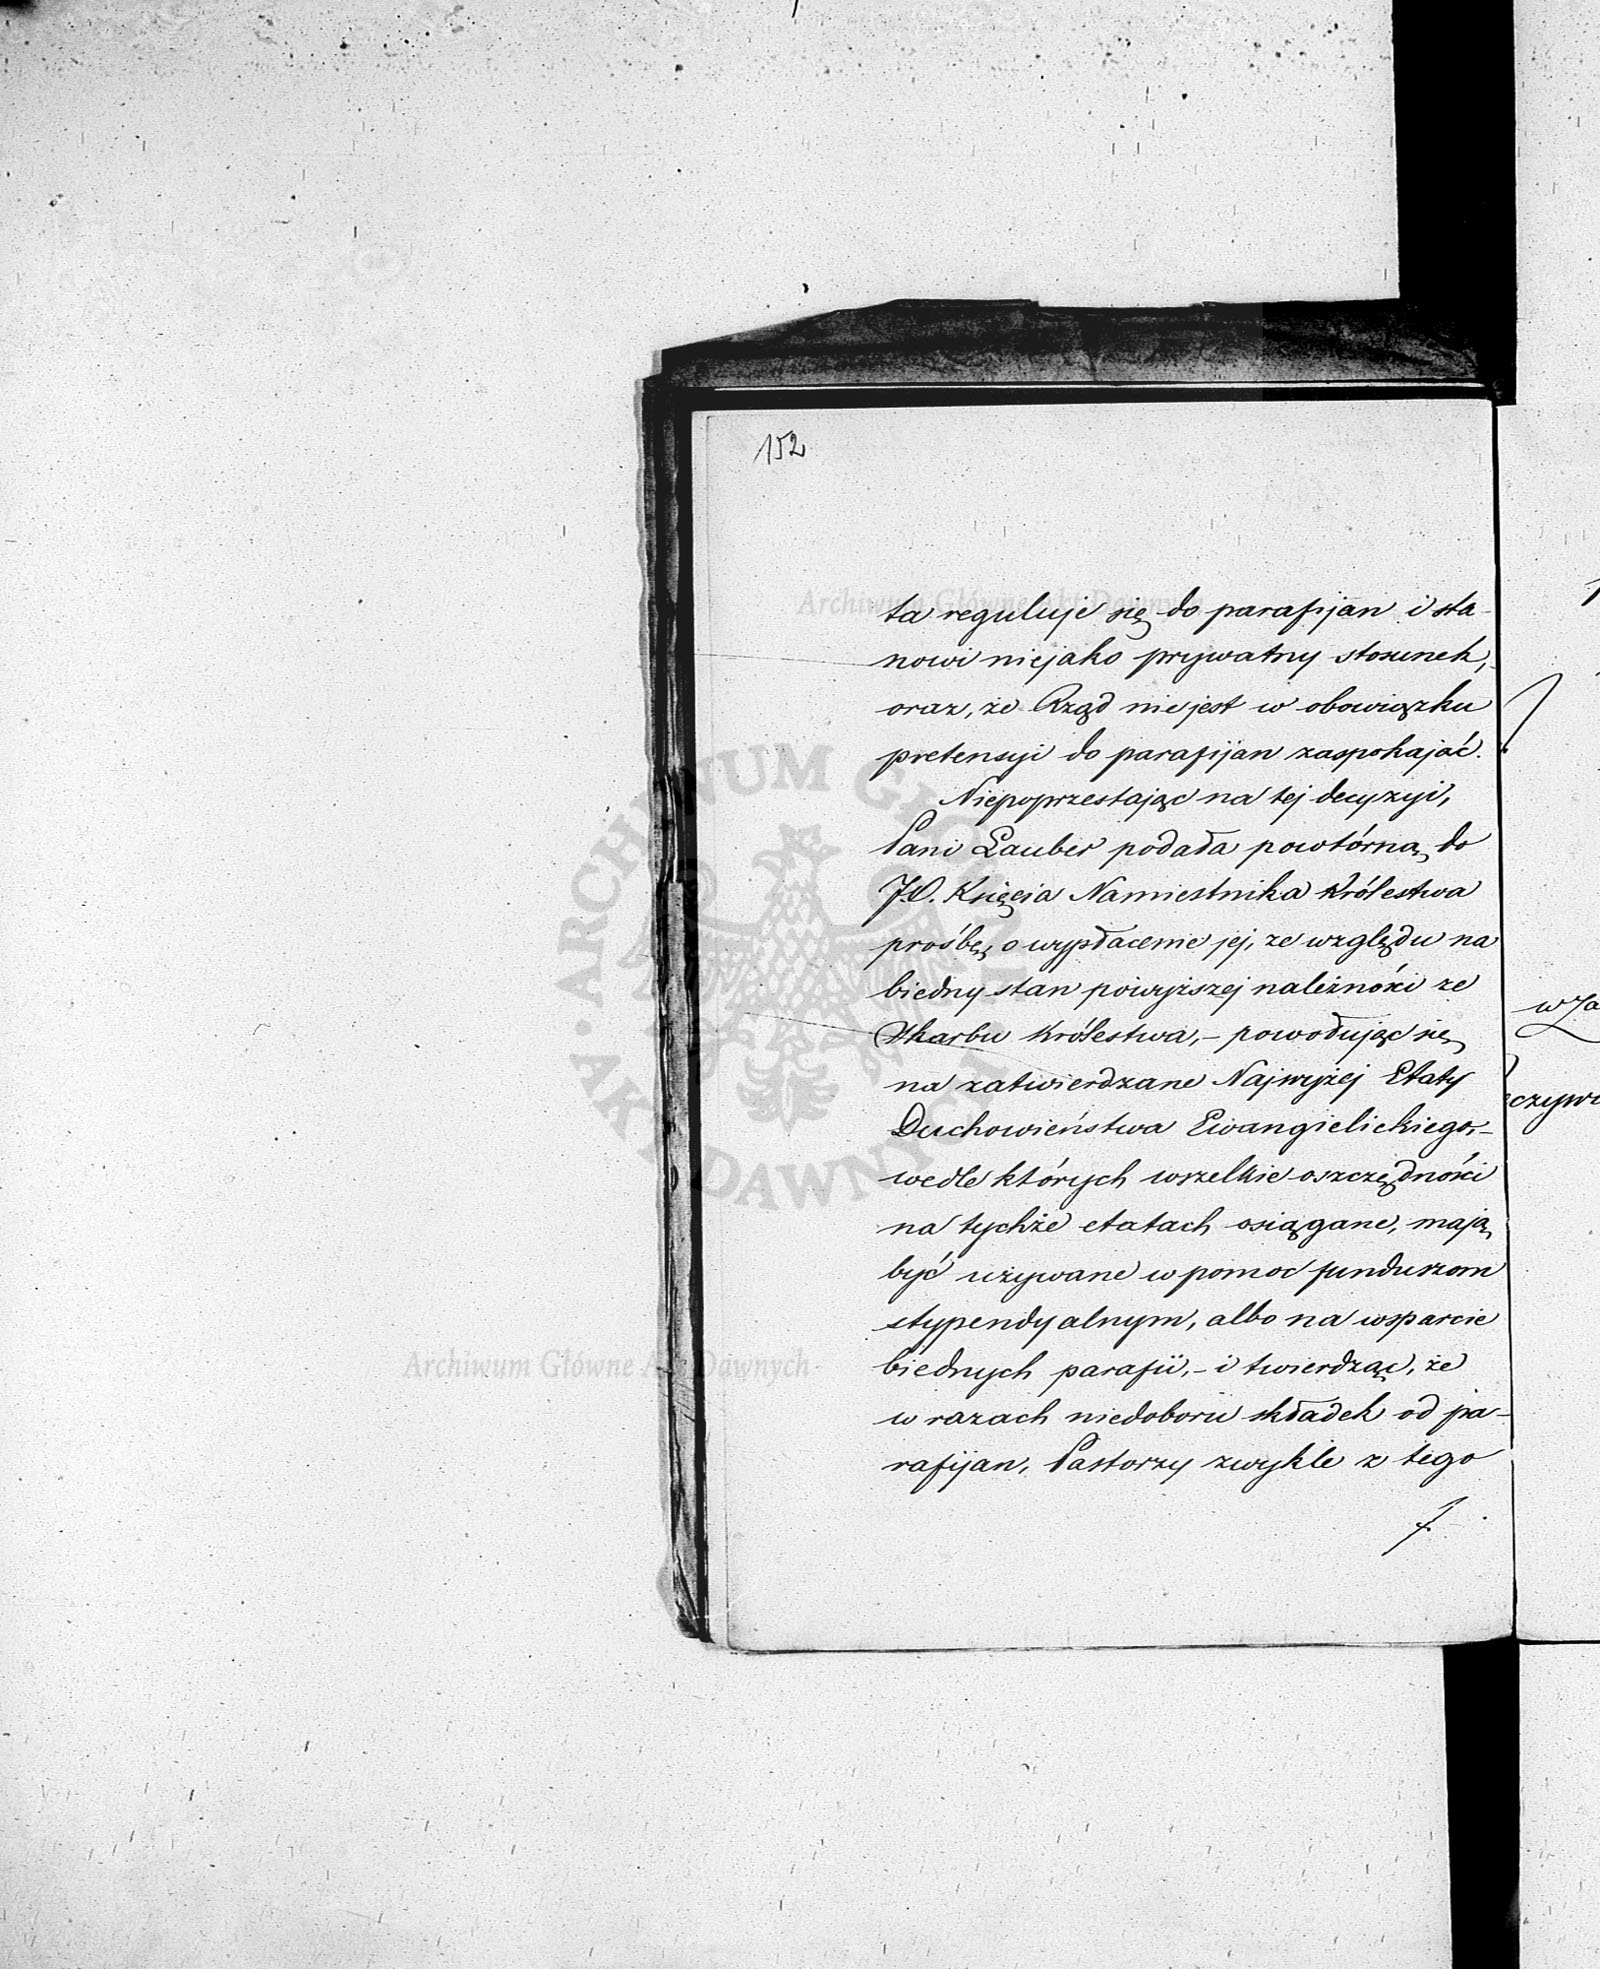 152
ta reguluje się do parafijan i sta-
nowi niejako prywatny stosunek,
oraz, że Rząd nie jest w obowiązku
pretensyi do parafijan zaspokajać.
Niepoprzestając na tej decyzyi,
Pani Lauber podała powtórną do
J.O. Księcia Namiestnika Królestwa
prośbę, o wypłacenie jej, ze względu na
biedny stan powyższej należności ze
Skarbu Królestwa,- powołując się
na zatwierdzane Najwyżej Etaty
Duchowieństwa Ewangielickiego,-
wedle których wszelkie oszczędności
na tychże etatach osiągane, mają
być używane w pomoc funduszom
stypendyalnym, albo na wsparcie
biednych parafii,- i twierdząc, że
w razach niedoboru składek od pa-
rafijan, Pastorzy zwykle z tego
Archiwum Główne Akt Dawnych
ARCHIWUM GŁÓWNE · AKT DAWNYCH
Archiwum Główne Akt Dawnych
w Za
czyw